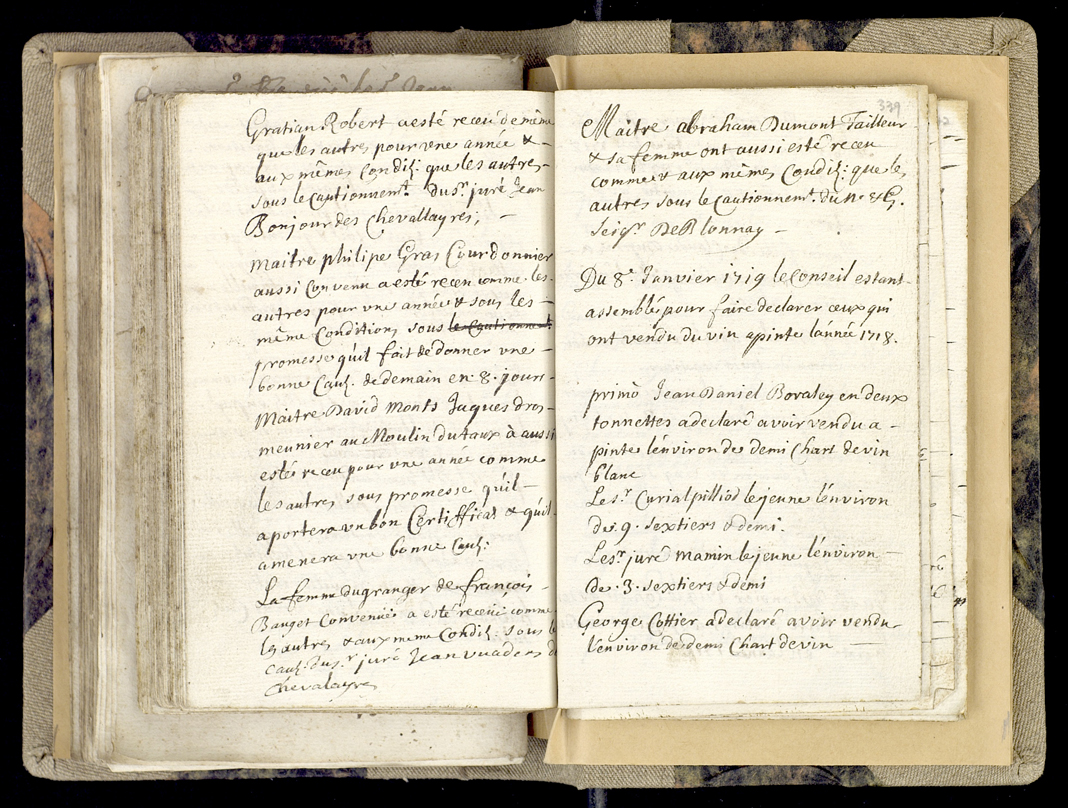 Gratian Robert a esté receu de même
que les autres pour vne année &
aux mêmes Condi͠: que les autres
sous le Cautionnemt. du Sr. juré Jean
Bonjour des Chevallayres; —
Maitre philipe Gras Courdonnier
aussi Convenu a esté receu comme les
autres pour vne année & sous les —
même Conditions sous le Cautionnemt.
promesse quil fait de donner vne —
bonne Cau͠. de demain en 8. jours —
Maitre David Jaques dros —
meunier au Moulin du taux à aussi
esté receu pour vne année comme
les autres sous promesse quil —
aportera vn bon Certifficat & quil
amenera vne bonne Cau͠:
La femme du granger de françois —
Bauget Convenüe a esté receüe comme
les autres & aux meme Condi͠: sous le
Cau͠. du Sr juré Jean
Chevalayres
339
Maitre abraham Dumont Tailleur
& sa femme ont aussi esté receu
comme & aux mêmes Condi͠: que les
autres sous le Cautionnemt. du N. & G.
seigr. De Blonnay —
Du 8e. Janvier 1719 le Conseil estant
assemblé pour faire declarer ceux qui
ont vendu du vin a pinte lánnée 1718.
primò Jean Daniel Boraley en deux
tonnettes a declaré avoir vendu a —
pinte lénviron de demi Chart de vin
blanc
Le Sr. Curial pilliod le jeune lénviron
de 9. sextiers & demi.
Le Sr juré mamin le jeune lénviron —
de .3. sextiers & demi
George Cottier a declaré avoir vendu
lénviron de demi Chart de vin —